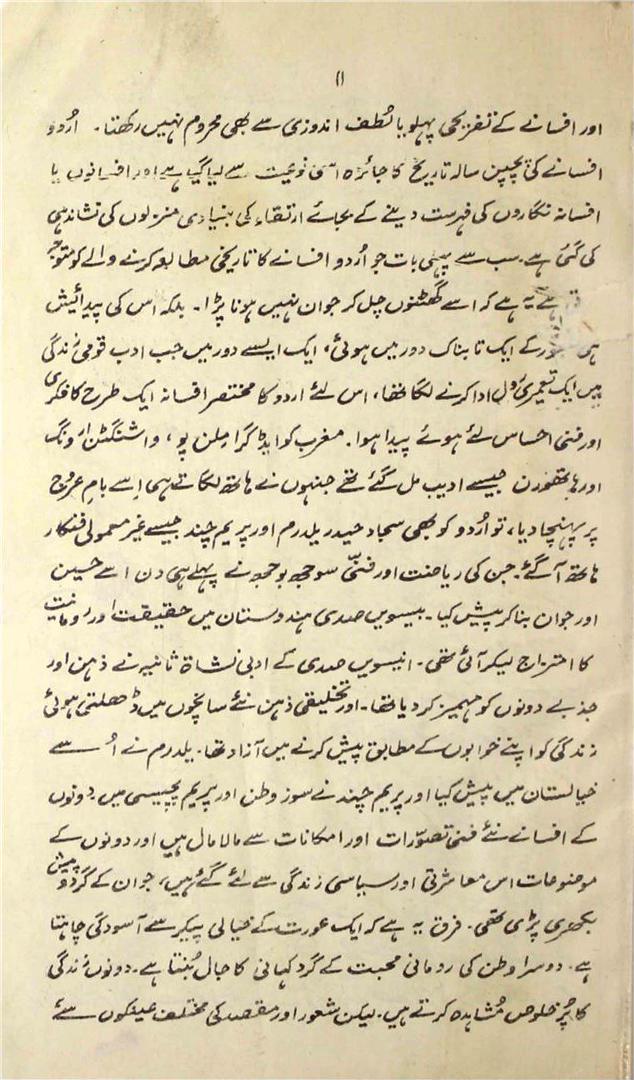 ۱۱
اور افسانے کے تفریحی پہلو یا لُطف اندوزی سے بھی محروم نہیں رکھتا ۔ اُردو
افسانے کی پچپن سالہ تاریخ کا جائزہ اسی نوعیت سے لیا گیا ہے اور افسانوں یا
افسانہ نگاروں کی فہرست دینے کے بجائے ارتقاء کی بنیادی منزلوں کی نشاندہی
کی گئی ہے ۔ سب سے پہلی بات جو اُردو افسانے کا تاریخی مطالعہ کرنے والے کو متوجہ
ہے یہ ہے کہ اسے گھٹنوں چل کر جوان نہیں ہونا پڑا ۔ بلکہ اس کی پیدائش
ہی کے ایک تابناک دور میں ہوئی، ایک ایسے دور میں جب ادب قومی زندگی
میں ایک تعمیری رول ادا کرنے لگا تھا، اس لئے اردو کا مختصر افسانہ ایک طرح کا فکری
اور فنی احساس لئے ہوئے پیدا ہوا ۔ مغرب کو ایڈگرایلن پو، واشنگٹن اِرونگ
اور ہاتھورن جیسے ادیب مل گئے تھے جنہوں نے ہاتھ لگاتے ہی اِسے بامِ عروج
پر پہنچا دیا، تو اُردو کو بھی سجاد حیدر یلدرم اور پریم چند جیسے غیر معمولی فنکار
ہاتھ آ گئے ۔ جن کی ریاضت اور فنّی سوجھ بوجھ نے پہلے ہی دن اسے حسین
اور جوان بنا کر پیش کیا ۔ بیسویں صدی ہندوستان میں حقیقت اور رومانیت
کا امتزاج لیکر آئی تھی ۔ انیسویں صدی کے ادبی نشاۃ ثانیہ نے ذہن اور
جذبے دونوں کو مہمیز کر دیا تھا ۔ اور تخلیقی ذہن نئے سانچوں میں ڈھلتی ہوئی
زندگی کو اپنے خوابوں کے مطابق پیش کرنے میں آزاد تھا ۔ یلدرم نے اُسے
خیالستان میں پیش کیا اور پریم چند نے سوز وطن اور پریم پچیسی میں ۔ دونوں
کے افسانے نئے فنی تصوّرات اور امکانات سے مالامال ہیں اور دونوں کے
موضوعات اس معاشرتی اور سیاسی زندگی سے لئے گئے ہیں، جو ان کے گرد و پیش
بکھری پڑی تھی ۔ فرق یہ ہے کہ ایک عورت کے خیالی پیکر سے آسودگی چاہتا
ہے ۔ دوسرا وطن کی رومانی محبت کے گرد کہانی کا جال بُنتا ہے ۔ دونوں زندگی
کا پُر خلوص مُشاہدہ کرتے ہیں ۔ لیکن شعور اور مقصد کی مختلف عینکوں سے